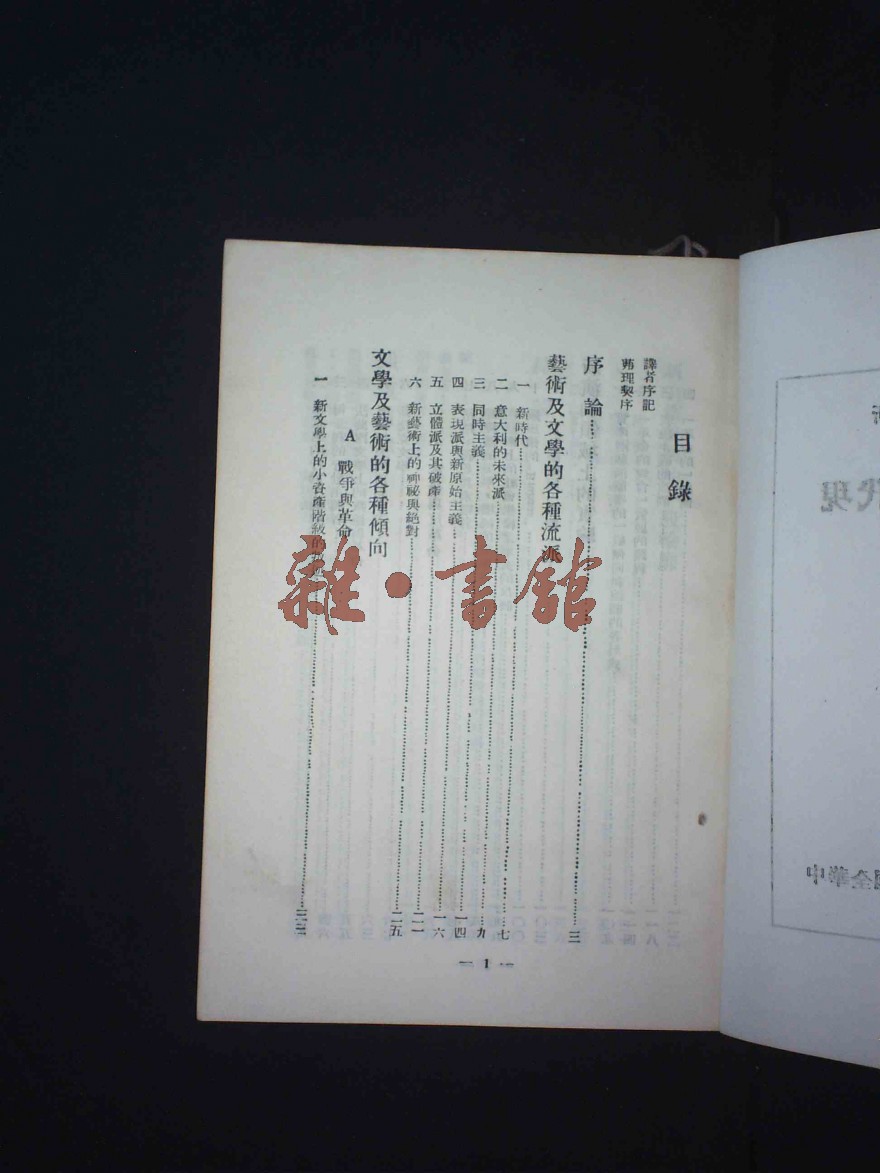 目錄
譯者序記
茀理契序
序論 三
藝術及文學的各種流派
一 新時代 七
二 意大利的未來派 九
三 同時主義 一四
四 表現派與新原始主義 一六
五 立體派及其破產 二一
六 新藝術上的神祕與絕對 二五
文學及藝術的各種傾向
A 戰爭與革命
一 新文學上的小資產階級的 三三
— 1 —
雜·書館